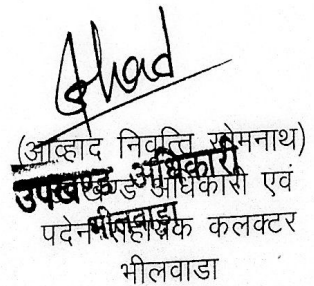 (आव्हाद निवृत्ति सोमनाथ)
उपखण्ड अधिकारी
उपखण्ड अधिकारी एवं
भीलवाड़ा
पदेन सहायक कलक्टर
भीलवाडा